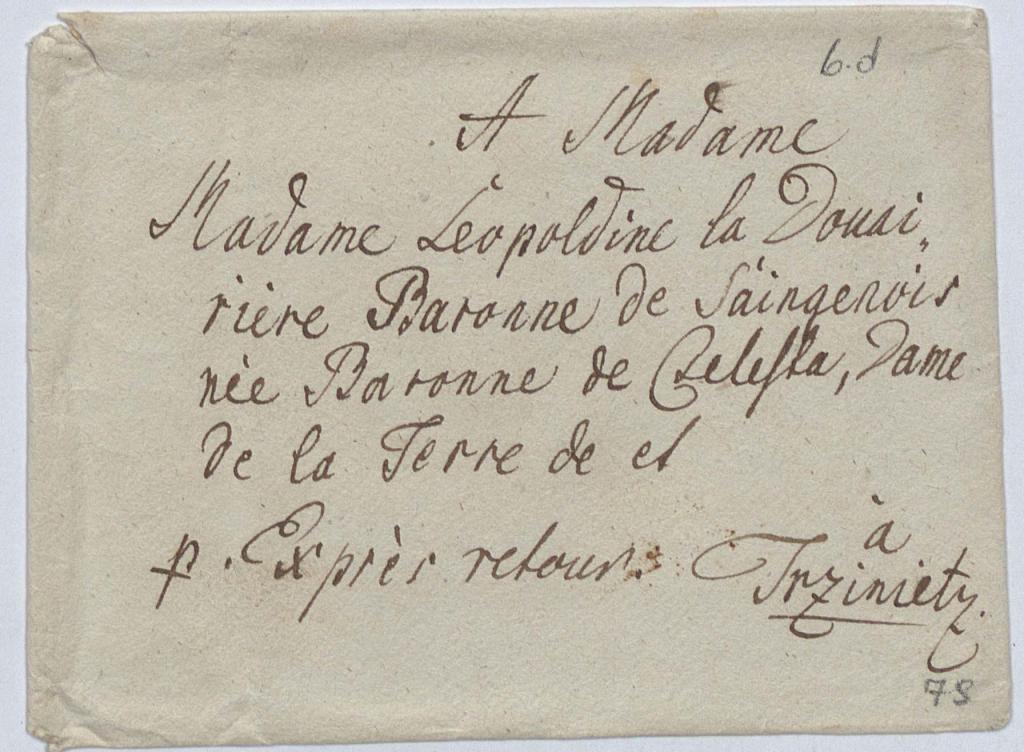 6.d
A Madame
Madame Léopoldine la Douai„
rière Baronne de Saingenois
née Baronne de Celesta, Dame
de la Terre de et
à
p. Exprès retour. Trzinietz.
78